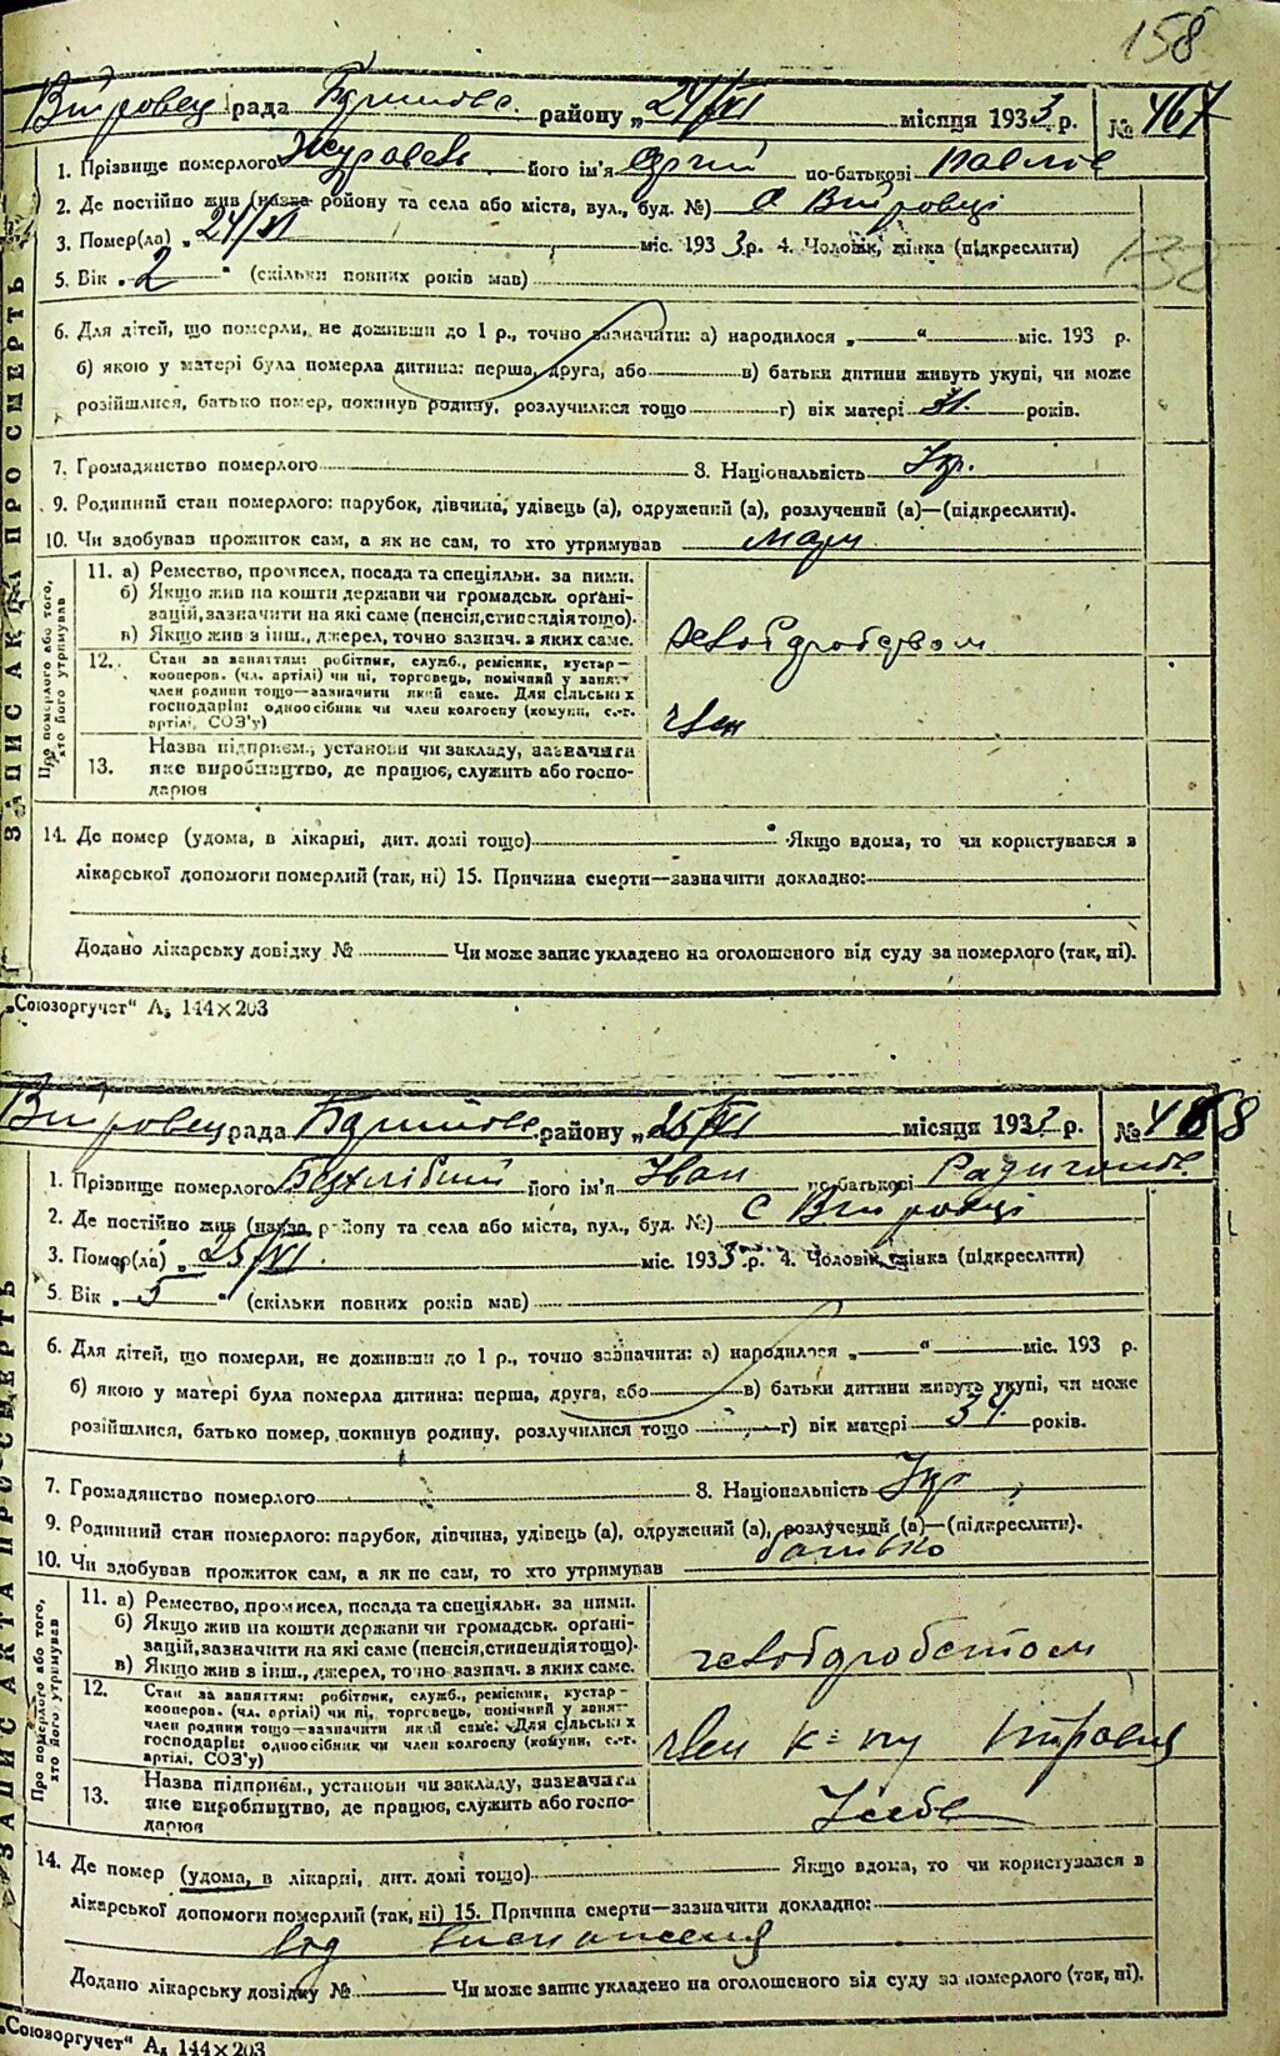 158
рада району „24/VI місяця 1933 р. № 467
1. Прізвище померлого Журавель його ім'я Сергій по-батькові Павлов
2. Де постійно жив (назва району та села або міста, вул., буд. №) С
3. Помер(ла) „24/VI міс. 1933 р. 4. Чоловік, жінка (підкреслити)
5. Вік „2" (скільки повних років мав)
138
6. Для дітей, що померли, не доживши до 1 р., точно зазначити: а) народилося „ " міс. 193 р.
б) якою у матері була померла дитина: перша, друга, або в) батьки дитини живуть укупі, чи може
розійшлися, батько помер, покинув родину, розлучилися тощо г) вік матері 31. років.
7. Громадянство померлого 8. Національність Укр.
9. Родинний стан померлого: парубок, дівчина, удівець (а), одружений (а), розлучений (а)—(підкреслити).
10. Чи здобував прожиток сам, а як не сам, то хто утримував мати
Про померлого або того, хто його утримував
11. а) Ремество, промисел, посада та спеціяльн. за ними.
б) Якщо жив на кошти держави чи громадськ. орґані-
зацій, зазначити на які саме (пенсія, стипендія тощо).
в) Якщо жив з інш., джерел, точно зазнач. з яких саме.
12. Стан за заняттям: робітник, служб., ремісник, кустар—
кооперов. (чл. артілі) чи ні, торговець, помічний у занят.
член родини тощо—зазначити який саме. Для сільських
господарів: одноосібник чи член колгоспу (комуни, с.-г.
артілі, СОЗ'у) член
Назва підприєм., установи чи закладу, зазначити
13. яке виробництво, де працює, служить або госпо-
дарює
14. Де помер (удома, в лікарні, дит. домі тощо) Якщо вдома, то чи користувався в
лікарської допомоги померлий (так, ні) 15. Причина смерти—зазначити докладно:
Додано лікарську довідку № Чи може запис укладено на оголошеного від суду за померлого (так, ні).
ЗАПИС АКТА ПРО СМЕРТЬ
„Союзоргучет" А₅ 144×203
рада району „25/VI місяця 1933 р. № 468
1. Прізвище померлого Безхлібний його ім'я Іван по-батькові
2. Де постійно жив (назва району та села або міста, вул., буд. №) С
3. Помер(ла) „25/VI міс. 1933 р. 4. Чоловік, жінка (підкреслити)
5. Вік „5" (скільки повних років мав)
6. Для дітей, що померли, не доживши до 1 р., точно зазначити: а) народилося „ " міс. 193 р.
б) якою у матері була померла дитина: перша, друга, або в) батьки дитини живуть укупі, чи може
розійшлися, батько помер, покинув родину, розлучилися тощо г) вік матері 34. років.
7. Громадянство померлого 8. Національність Укр
9. Родинний стан померлого: парубок, дівчина, удівець (а), одружений (а), розлучений (а)—(підкреслити).
10. Чи здобував прожиток сам, а як не сам, то хто утримував батько
Про померлого або того, хто його утримував
11. а) Ремество, промисел, посада та спеціяльн. за ними.
б) Якщо жив на кошти держави чи громадськ. орґані-
зацій, зазначити на які саме (пенсія, стипендія тощо).
в) Якщо жив з інш., джерел, точно зазнач. з яких саме.
12. Стан за заняттям: робітник, служб., ремісник, кустар—
кооперов. (чл. артілі) чи ні, торговець, помічний у занят.
член родини тощо—зазначити який саме. Для сільських
господарів: одноосібник чи член колгоспу (комуни, с.-г.
артілі, СОЗ'у) член
Назва підприєм., установи чи закладу, зазначити
13. яке виробництво, де працює, служить або госпо-
дарює
14. Де помер (удома, в лікарні, дит. домі тощо) Якщо вдома, то чи користувався в
лікарської допомоги померлий (так, ні) 15. Причина смерти—зазначити докладно:
від виснаження
Додано лікарську довідку № Чи може запис укладено на оголошеного від суду за померлого (так, ні).
ЗАПИС АКТА ПРО СМЕРТЬ
„Союзоргучет" А₅ 144×203